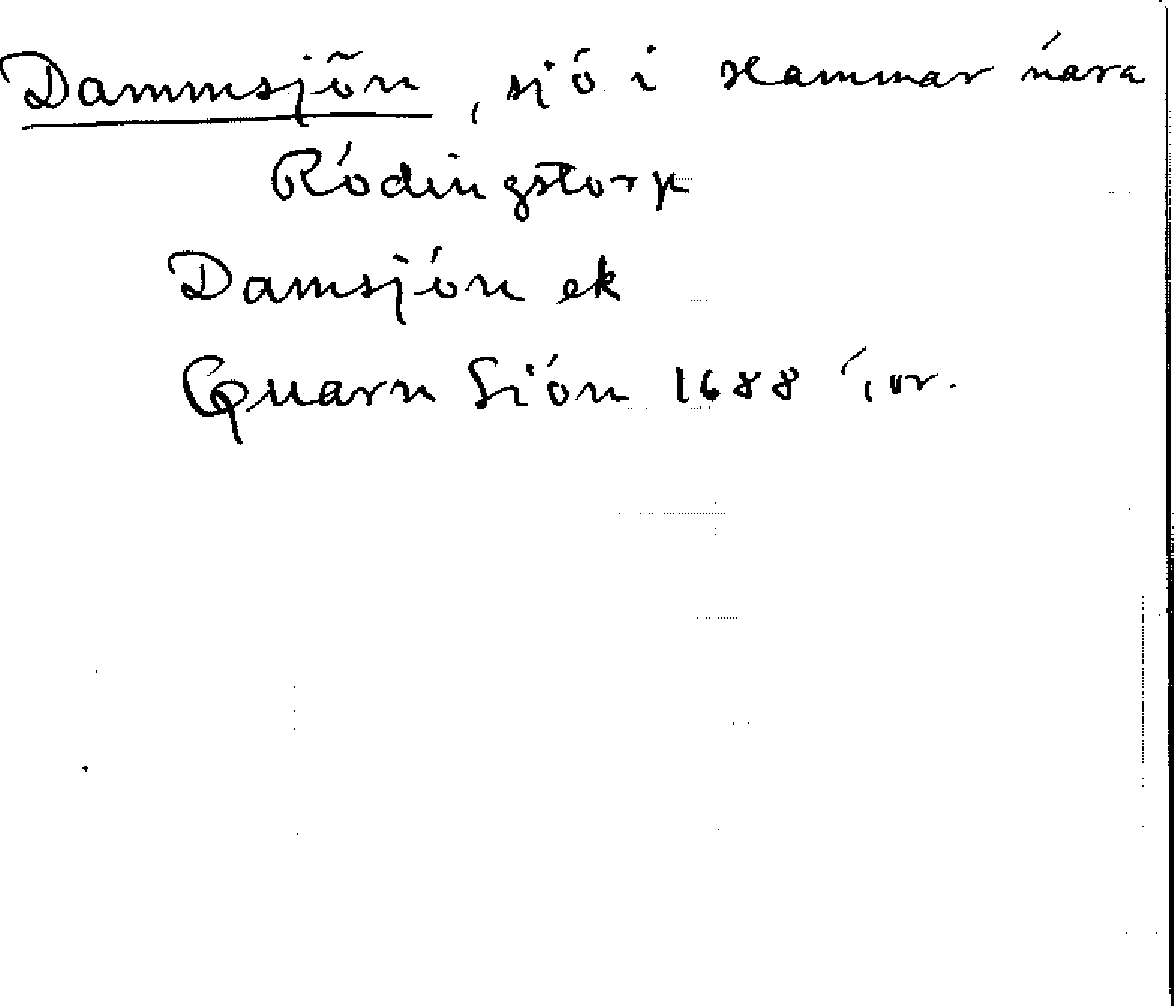 Dammsjön, sjö i Hammar nära
Rödingstorp
Damsjön ek
Quarn Siön 1688